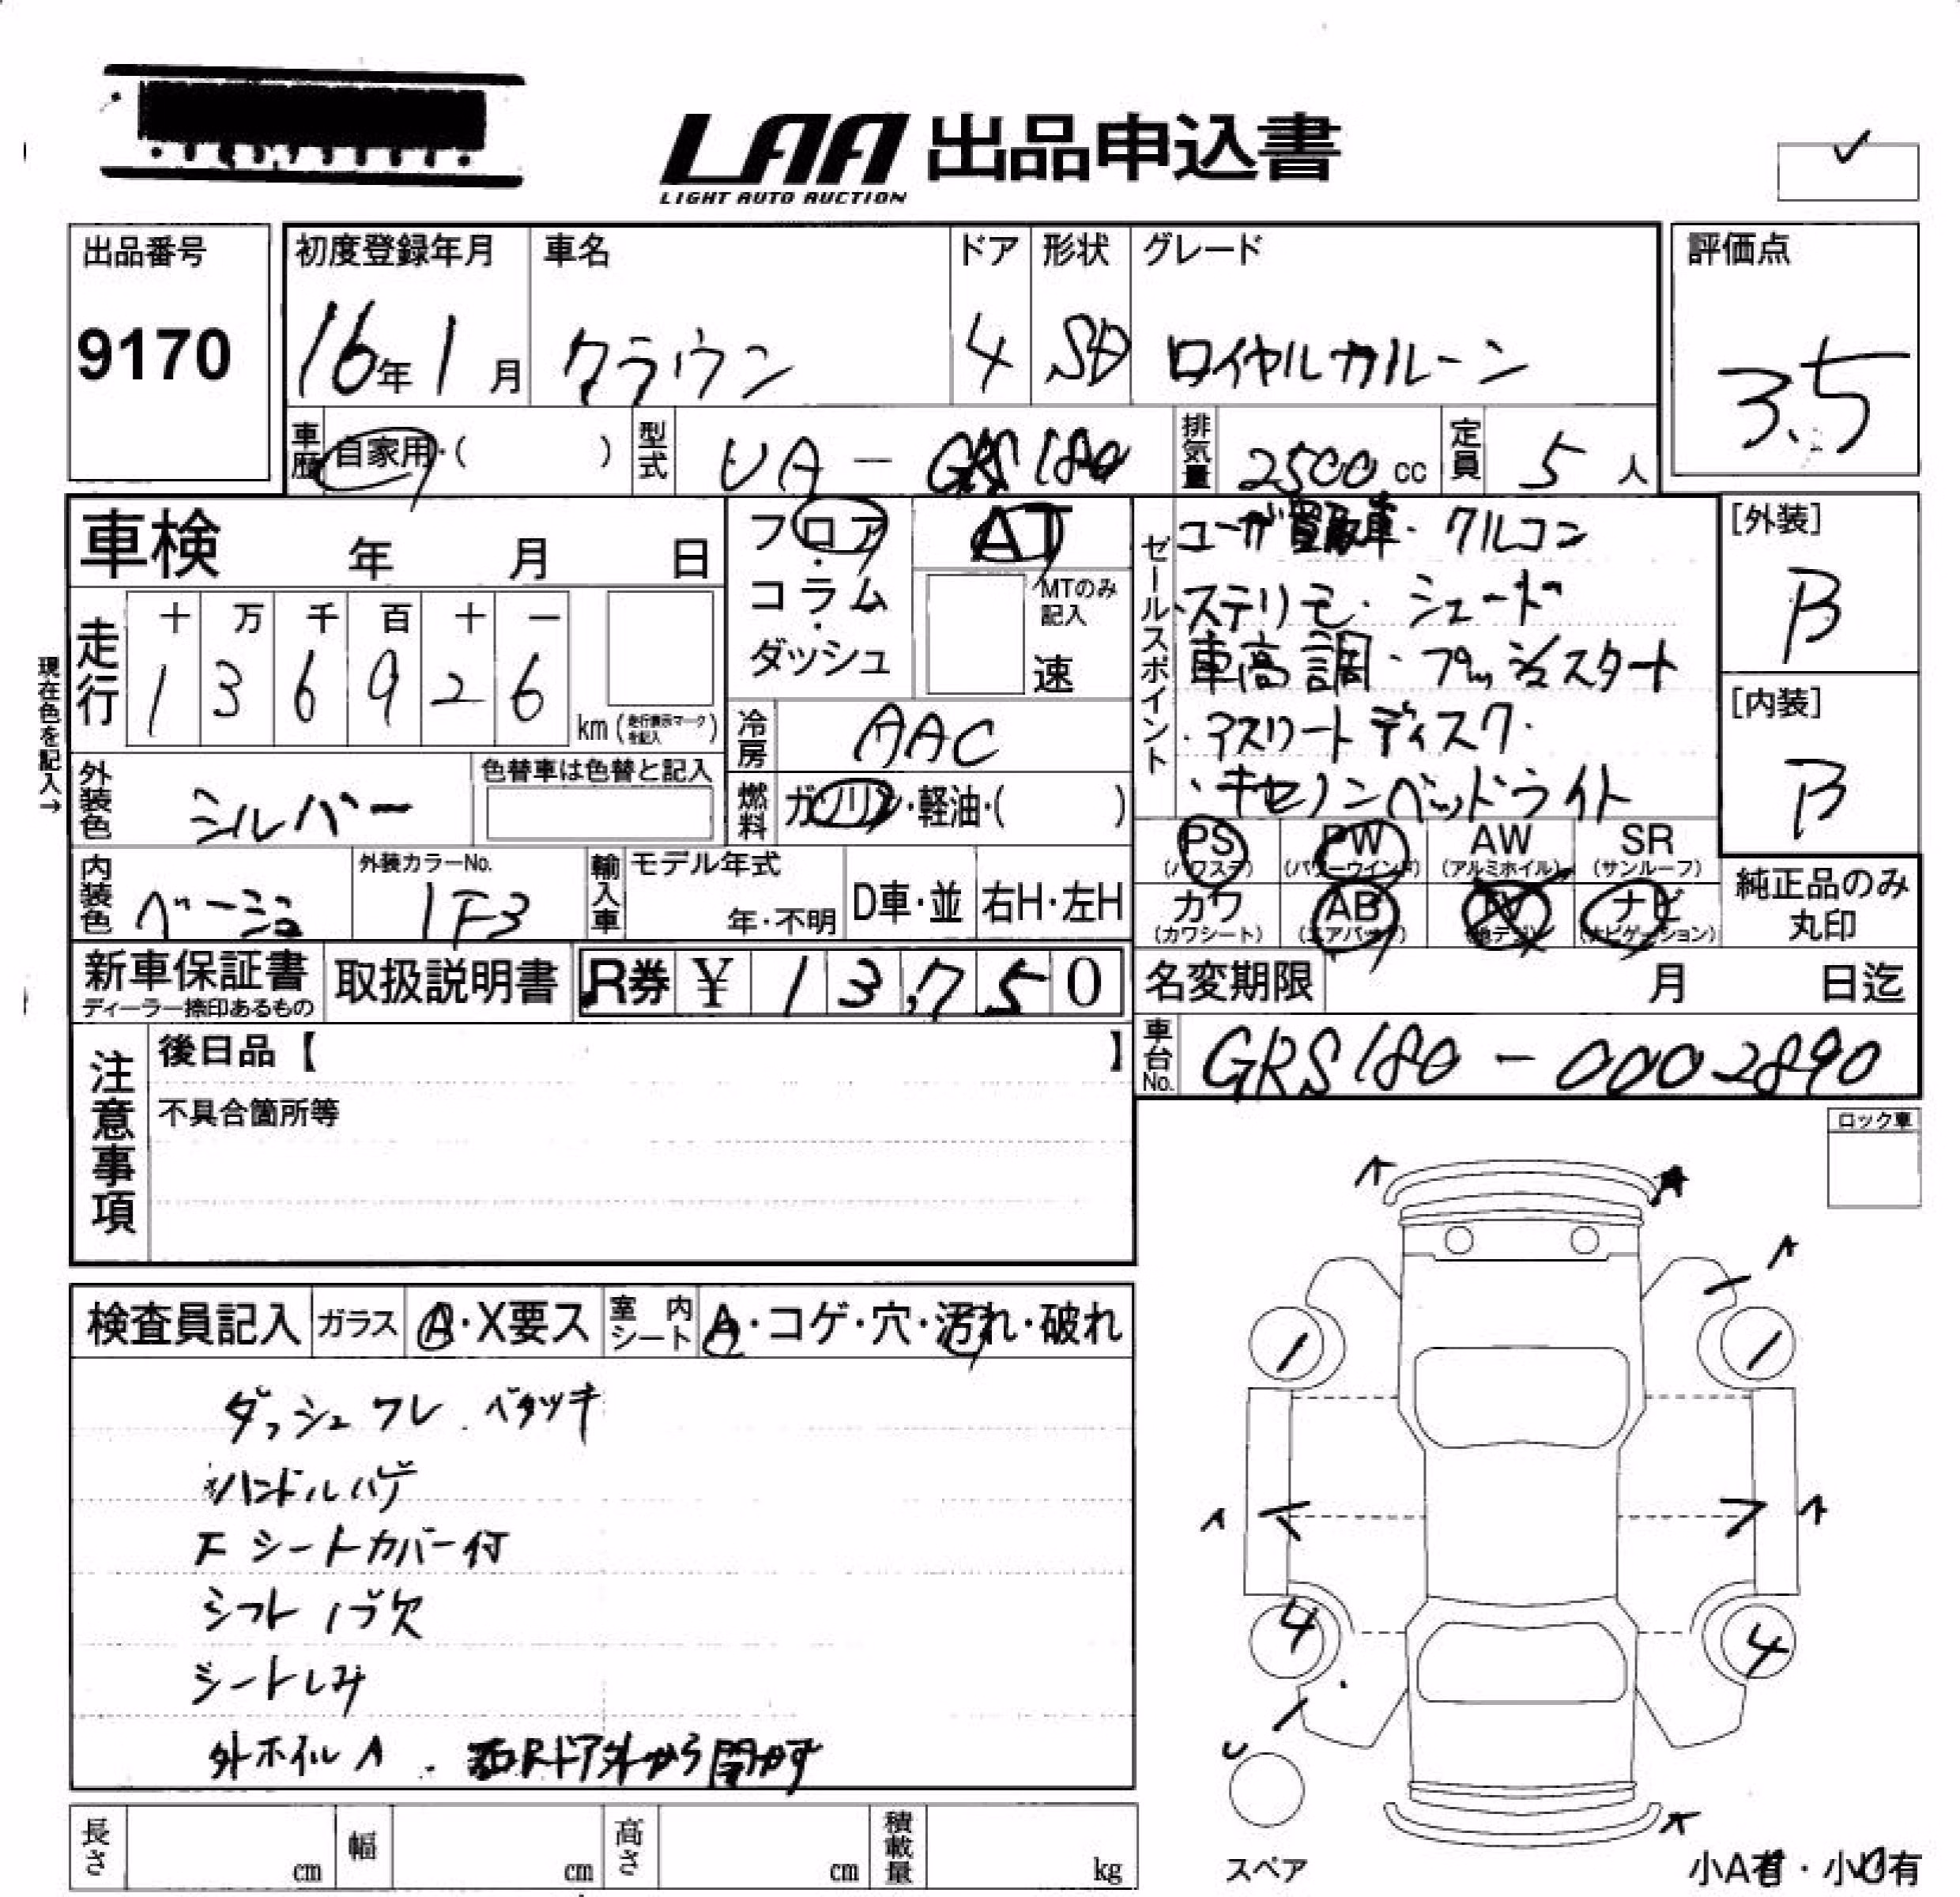 LAA 出品申込書
LIGHT AUTO AUCTION
出品番号
9170
初度登録年月
16年 1月
車名
クラウン
ドア
4
形状
SD
グレード
ロイヤルサルーン
評価点
3.5
車歴
自家用・( )
型式
UA - GRS180
排気量
2500 cc
定員
5 人
車検 年 月 日
フロア・コラム・ダッシュ
AT
MTのみ記入
速
セールスポイント
ユーザー買取車・クルコン
・ステリモ・シェード
車高調・プッシュスタート
・アスリートディスク・
・キセノンヘッドライト
[外装]
B
[内装]
B
現在色を記入→
走行
十 万 千 百 十 一
1 3 6 9 2 6
km (走行表示マークを記入)
冷房
AAC
外装色
シルバー
色替車は色替と記入
燃料
ガソリン・軽油・( )
PS (パワステ)
PW (パワーウインド)
AW (アルミホイル)
SR (サンルーフ)
内装色
ベージュ
外装カラーNo.
1F3
輸入車
モデル年式
年・不明
D車・並
右H・左H
カワ (カワシート)
AB (エアバッグ)
TV (地デジ)
ナビ (ナビゲーション)
純正品のみ丸印
新車保証書
ディーラー捺印あるもの
取扱説明書
R券 ¥ 13,750
名変期限 月 日迄
車台No.
GRS180 - 0002890
注意事項
後日品【 】
不具合箇所等
ロック車
検査員記入
ガラス
A・X要ス
室内シート
A・コゲ・穴・汚れ・破れ
ダッシュワレ . ベタツキ
ハンドルハゲ
F シートカバー付
シフトノブ欠
シートしみ
外ホイルA . 右Rドア外から開かず
A
A
A
1
1
A
A
4
4
U
スペア
A
小A有・小U有
長さ cm
幅 cm
高さ cm
積載量 kg